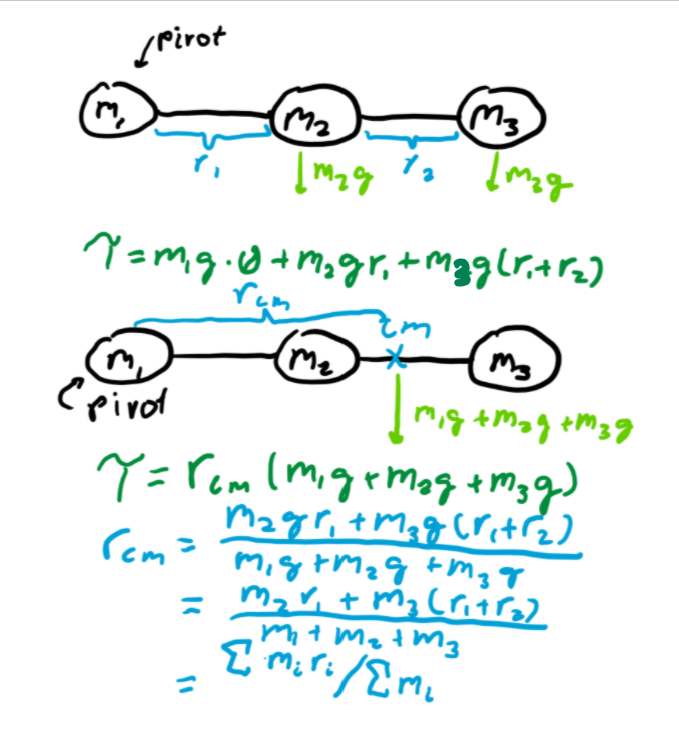 pivot
m₁ m₂ m₃
r₁ r₂
m₂g m₃g
τ = m₁g · 0 + m₂gr₁ + m₃g(r₁+r₂)
rcm
cm
m₁ m₂ m₃
pivot
m₁g + m₂g + m₃g
τ = rcm (m₁g + m₂g + m₃g)
rcm = m₂gr₁ + m₃g(r₁+r₂)
m₁g + m₂g + m₃g
= m₂r₁ + m₃(r₁+r₂)
m₁ + m₂ + m₃
= Σ mᵢrᵢ / Σ mᵢ